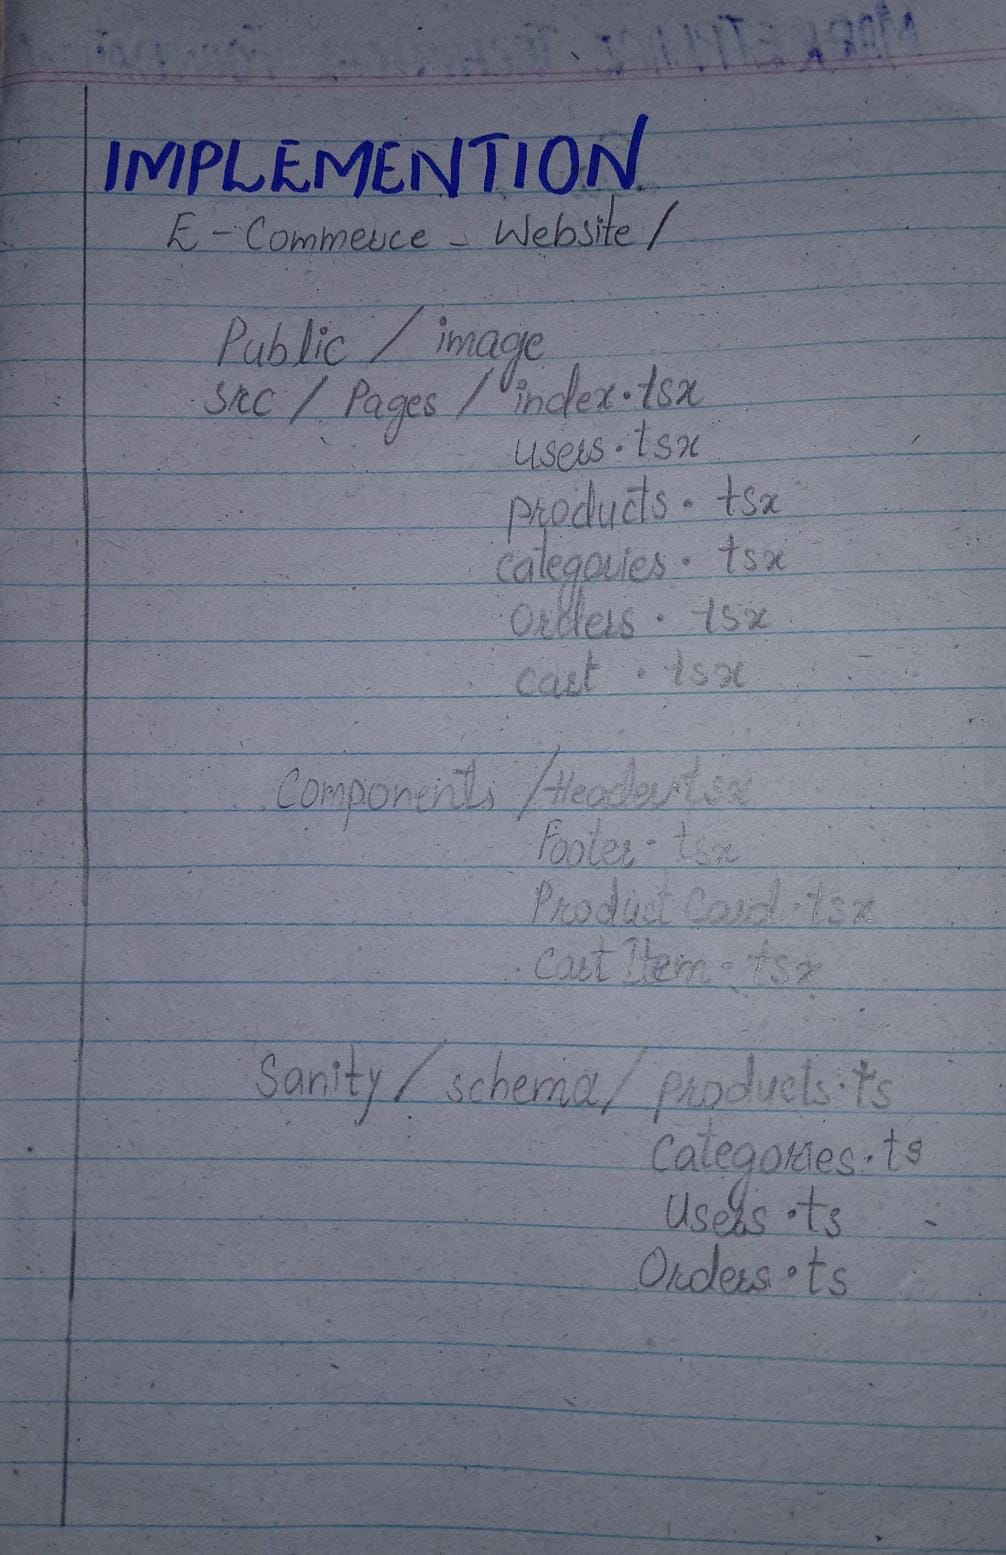 IMPLEMENTION
E-Commerce - Website /
Public / image
src / Pages / index.tsx
users.tsx
products.tsx
categories.tsx
Orders.tsx
cart.tsx
Components / Header.tsx
Footer.tsx
Product Card.tsx
Cart Item.tsx
Sanity / schema / products.ts
Categories.ts
Users.ts
Orders.ts